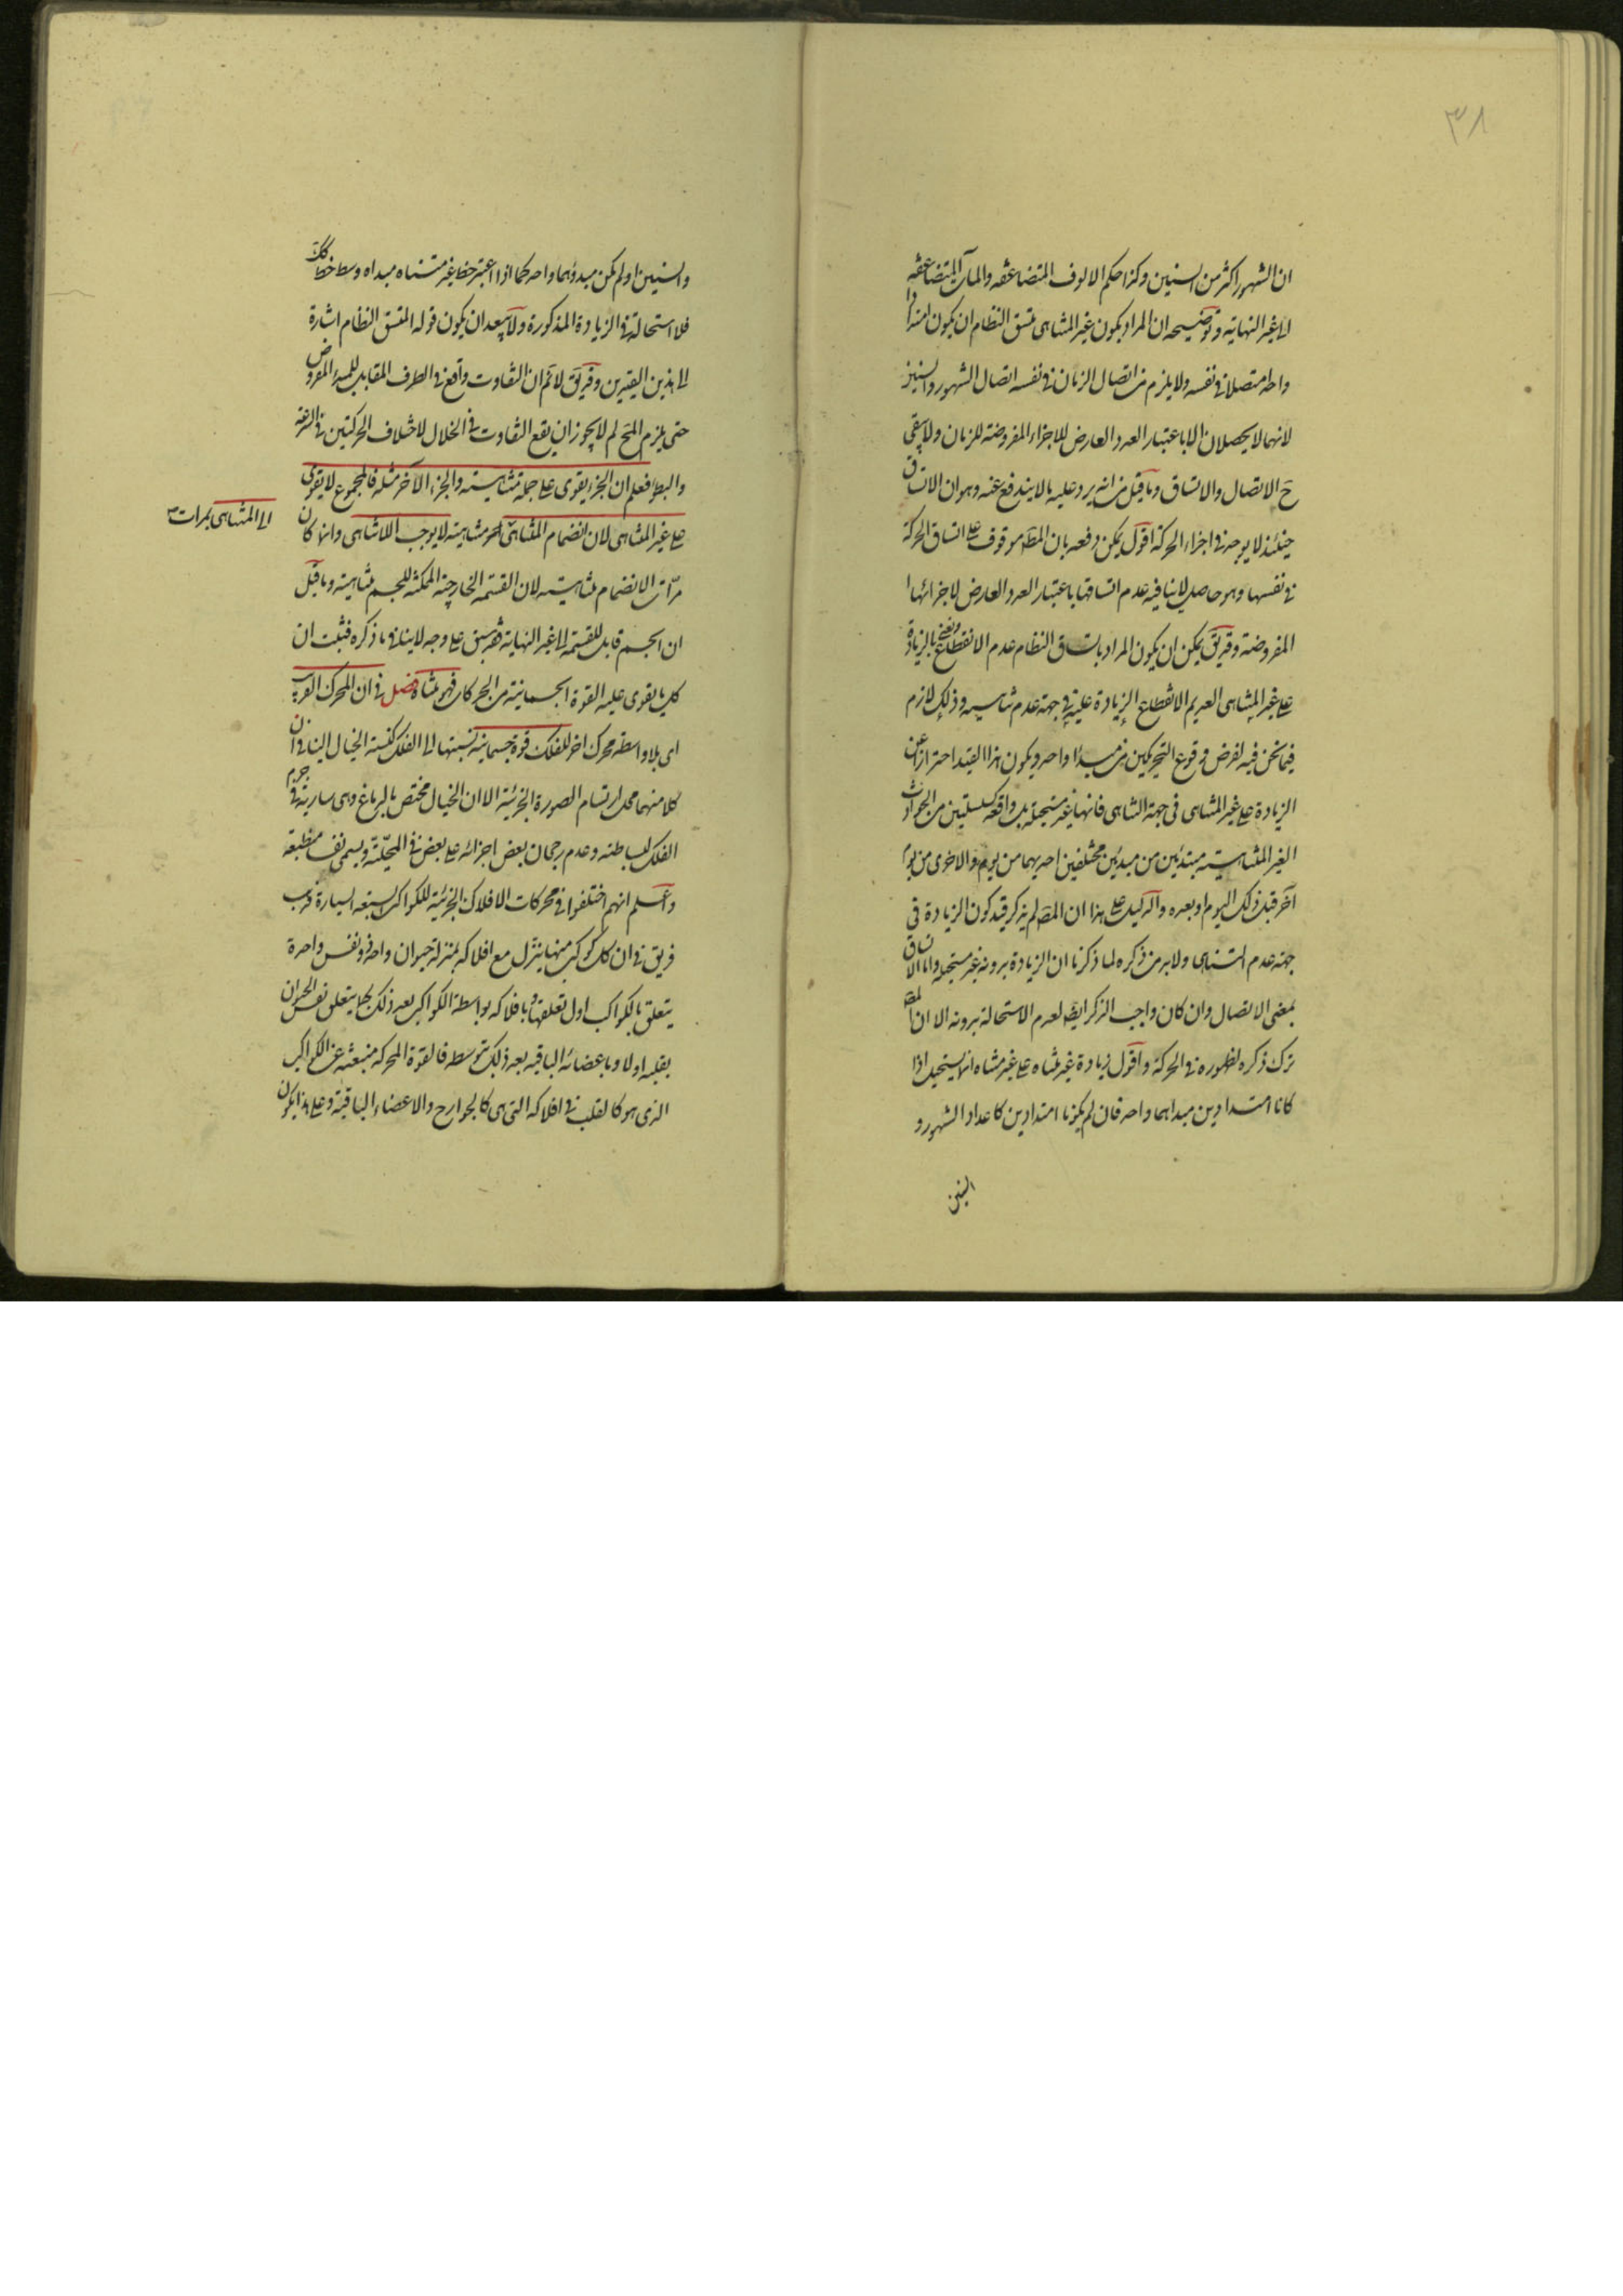 ٣٨
ان الشهور اكثر من السنين وكذا حكم الالوف المتضاعفه والمآت المتضاعفه
الى غير النهاية وتوضيحه ان المراد بكون غير المتناهى متسق النظام ان يكون امتدادا
واحدا متصلا فى نفسه ولا يلزم من اتصال الزمان فى نفسه اتصال الشهور والسنين
لانهما لا يحصلان الا باعتبار العدد العارض للاجزاء المفروضة للزمان ولا يبقى
ح الاتصال والاتساق وما قيل من انه يرد عليه ما لا يندفع عنه وهو ان الاتساق
حينئذ لا يوجد فى اجزاء الحركة اقول يمكن دفعه بان المط موقوف على اتساق الحركة
فى نفسها وهو حاصل لا ينافيه عدم اتساقها باعتبار العدد العارض لاجزائها
المفروضة وقد يق يمكن ان يكون المراد باتساق النظام عدم الانقطاع ويعنى بالزيادة
على غير المتناهى العديم الانقطاع الزيادة عليه فى جهة عدم تناهيه وذلك لازم
فيما نحن فيه لفرض وقوع التحريكين من مبدأ واحد ويكون هذا القيد احترازا عن
الزيادة على غير المتناهى فى جهة التناهى فانها غير مستحيلة بل واقعة كسلسلتين من الحوادث
الغير المتناهية مبتدئتين من مبدئين مختلفين احديهما من يوم والاخرى من يوم
آخر قبل ذلك اليوم او بعده والدليل على هذا ان المص لم يذكر قيد كون الزيادة فى
جهة عدم التناهى ولا بد من ذكره لما ذكرنا ان الزيادة بدونه غير مستحيلة واما الاتساق
بمعنى الاتصال وان كان واجب الذكر ايضا لعدم الاستحالة بدونه الا ان المص
ترك ذكره لظهوره فى الحركة واقول زيادة غير متناه على غير متناه انما يستحيل اذا
كانا امتدادين مبداهما واحد فان لم يكونا امتدادين كاعداد الشهور و
السنين
والسنين او لم يكن مبدؤهما واحد كما اذا اعتبر خط غير متناه مبداه وسط خط كك
فلا استحالة فى الزيادة المذكورة ولا يبعد ان يكون قوله المتسق النظام اشارة
الى هذين القيدين وقد يق لا نم ان التفاوت واقع فى الطرف المقابل للمبدء المفروض
حتى يلزم المح لم لا يجوز ان يقع التفاوت فى الخلال لاختلاف الحركتين فى السرعة
والبطؤ فعلم ان الجزء يقوى على جملة متناهية والجزء الآخر مثله فالمجموع لا يقوى
على غير المتناهى لان انضمام المتناهى بمرات متناهية لا يوجب اللاتناهى وانما كان
الى المتناهى بمرات
مرّات الانضمام متناهية لان القسمة الخارجية الممكنة للجسم متناهية وما قيل
ان الجسم قابل للقسمة الى غير النهاية فقد سبق على وجه لا ينافى ما ذكره فثبت ان
كل ما يقوى عليه القوة الجسمانية من الحركات فهو متناه فصل فى ان المحرك القريب
اى بلا واسطة محرك اخر للفلك قوة جسمانية نسبتها الى الفلك كنسبة الخيال الينا فى ان
كلا منهما محل ارتسام الصورة الجزئية الا ان الخيال مختص بالدماغ وهى سارية فى جرم
الفلك لبساطته وعدم رجحان بعض اجزائه على بعض فى المحليّة ويسمى نفسا منطبعة
واعلم انهم اختلفوا فى محركات الافلاك الجزئية للكواكب السبعة السيارة فذهب
فريق فى ان كل كوكب منها ينزل مع افلاكه بمنزلة حيوان واحد ذو نفس واحدة
يتعلق بالكواكب اول تعلقها وبافلاكه بواسطة الكواكب بعد ذلك كما يتعلق نفس الحيوان
بقلبه اولا وباعضائه الباقيه بعد ذلك بتوسطه فالقوة المحركة منبعثة عن الكواكب
الذى هو كالقلب فى افلاكه التى هى كالجوارح والاعضاء الباقية وعلى هذا يكون